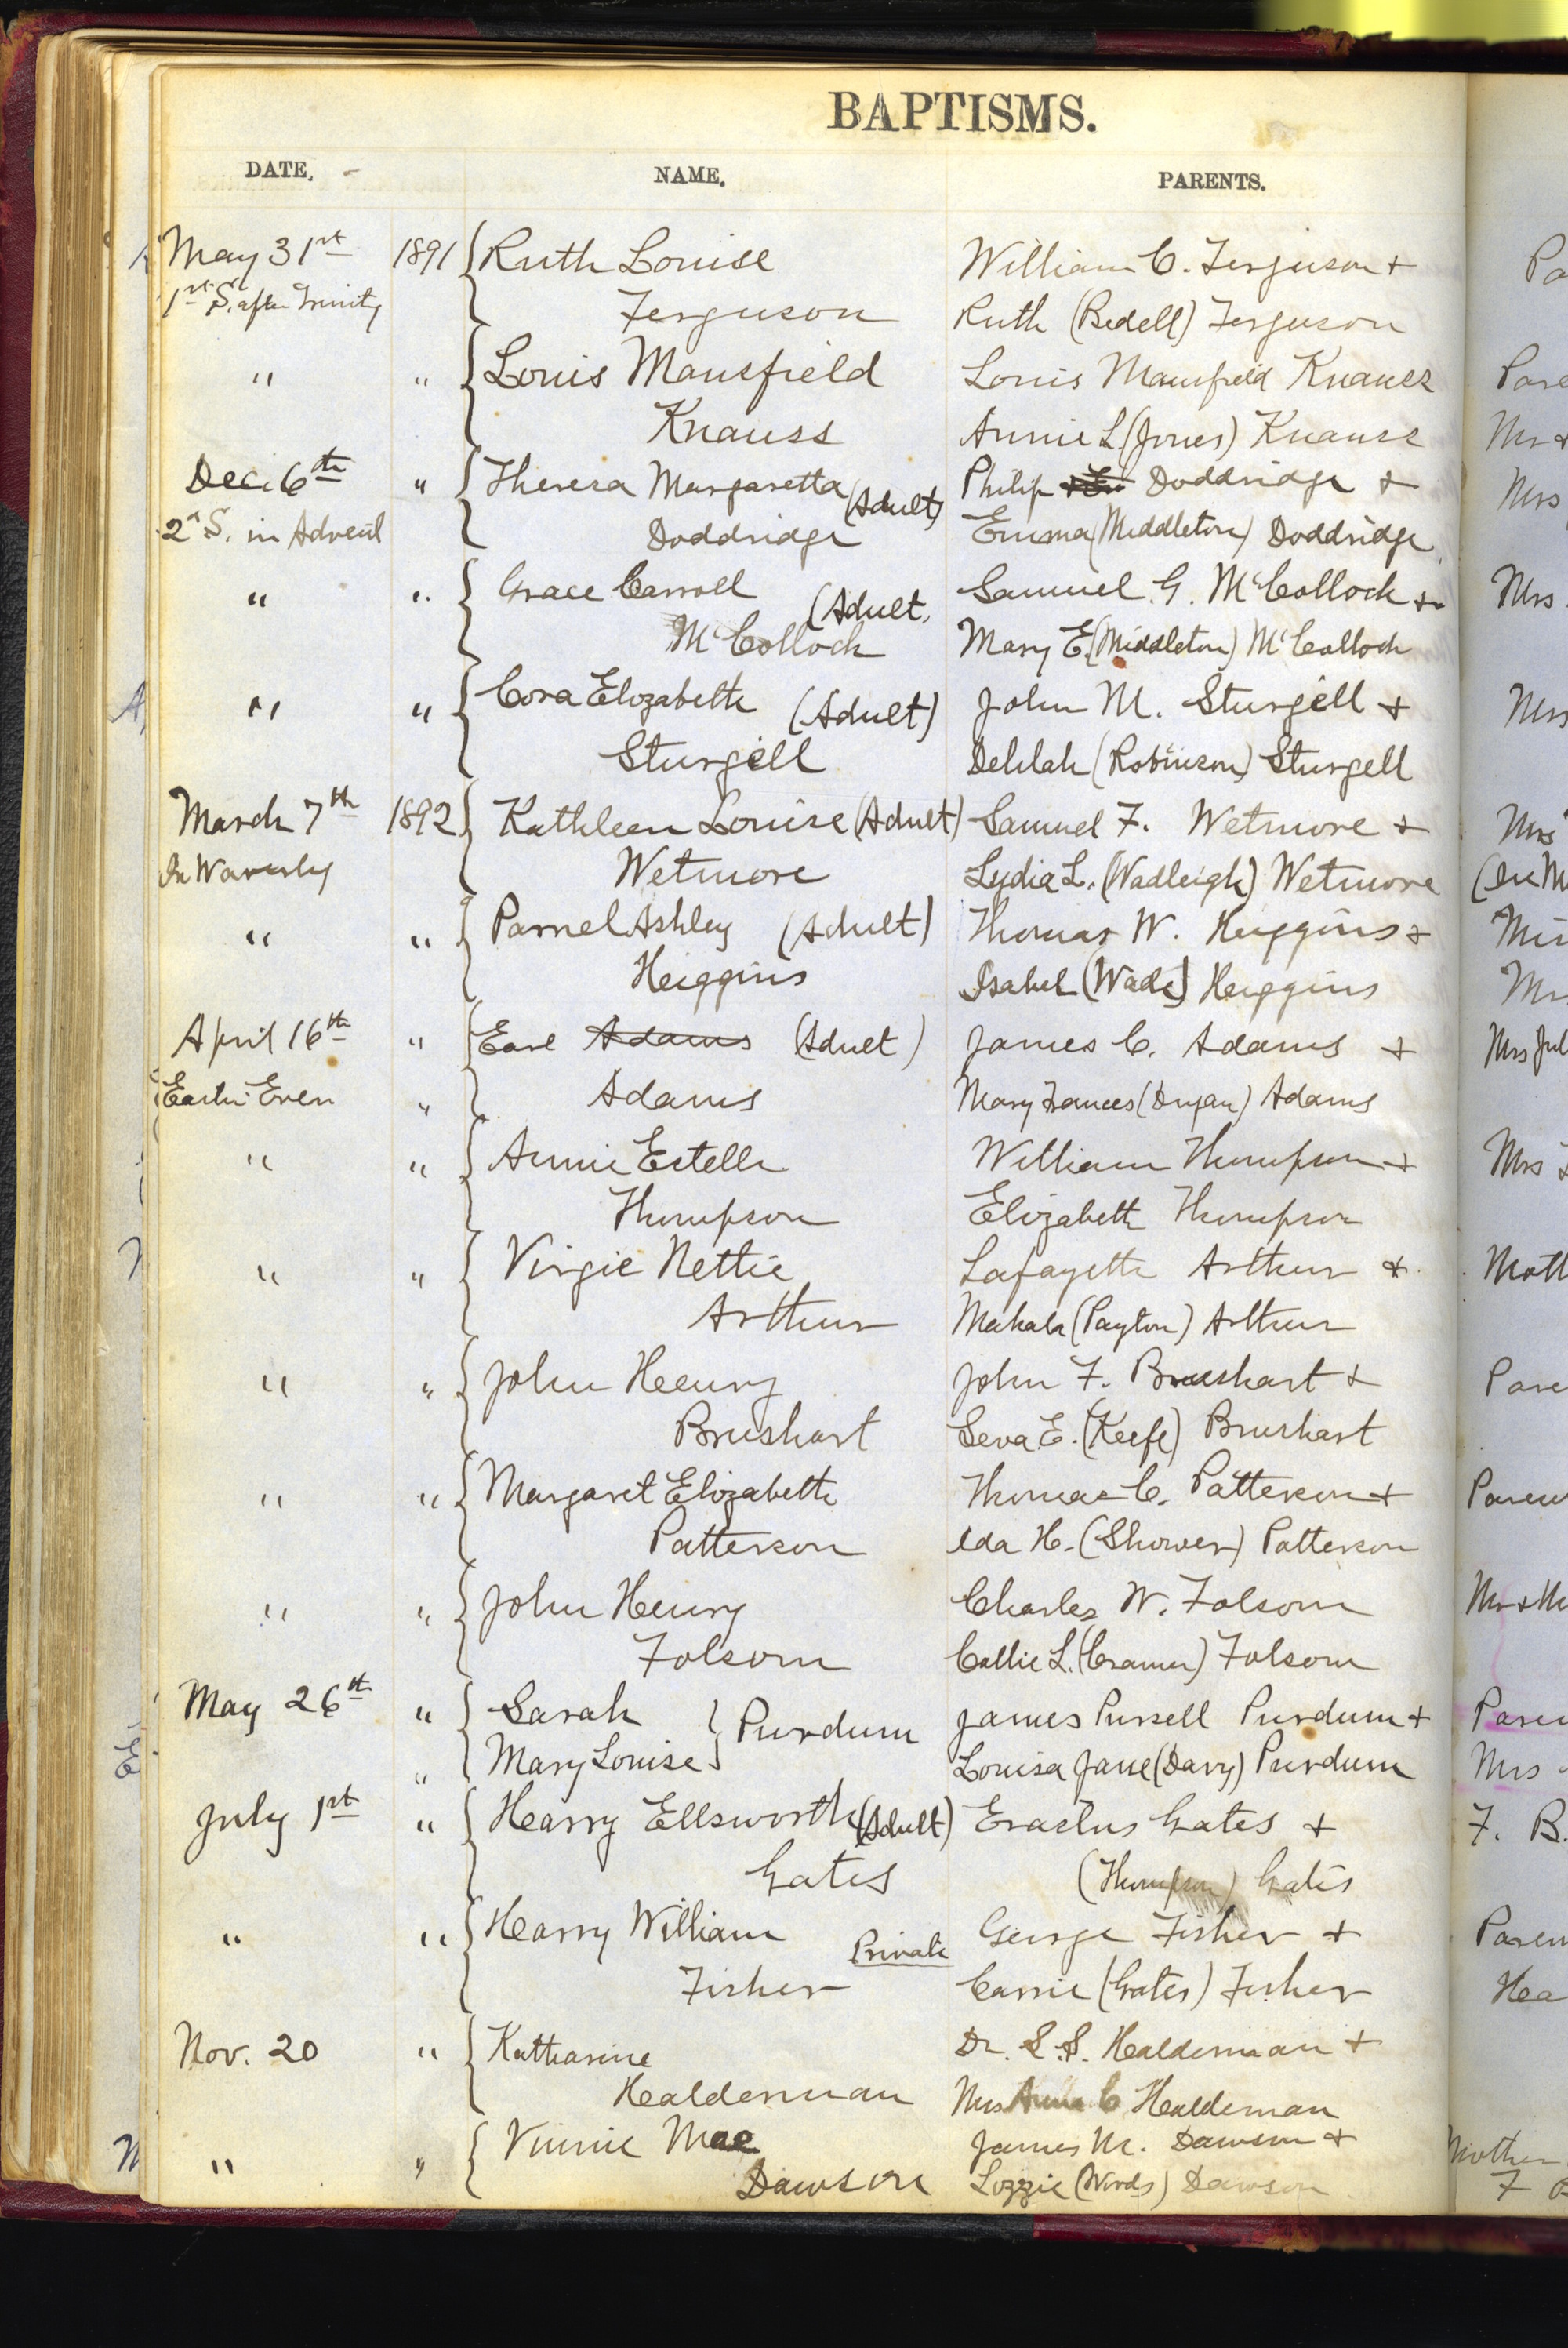 BAPTISMS.
DATE. NAME. PARENTS.
May 31st 1891 Ruth Louise William C. Ferguson +
1st S. after Trinity Ferguson Ruth (Bedell) Ferguson
" " Louis Mansfield Louis Mansfield Knauss
Knauss Annie L. (Jones) Knauss
Dec. 6th " Theresa Margaretta (Adult) Philip Doddridge +
2d S. in Advent Doddridge Emma (Middleton) Doddridge
" " Grace Carroll (Adult, Samuel G. McColloch +
McColloch Mary E. (Middleton) McColloch
" " Cora Elizabeth (Adult) John M. Sturgell +
Sturgell Delilah (Robinson) Sturgell
March 7th 1892 Kathleen Louise (Adult) Samuel F. Wetmore +
In Waverly Wetmore Lydia L. (Wadleigh) Wetmore
" " Parnel Ashley (Adult) Thomas W. Heiggins +
Heiggins Isabel (Wade) Heiggins
April 16th " Earl Adams (Adult) James C. Adams +
Easter Even " Adams Mary Frances (Dugan) Adams
" " Annie Estelle William Thompson +
Thompson Elizabeth Thompson
" " Virgie Nettie Lafayette Arthur +
Arthur Mahala (Payton) Arthur
" " John Henry John F. Brushart +
Brushart Seva E. (Keefe) Brushart
" " Margaret Elizabeth Thomas C. Patterson +
Patterson Ida H. (Shower) Patterson
" " John Henry Charles W. Folsom
Folsom Callie L. (Cramer) Folsom
May 26th " Sarah Purdum James Pursell Purdum +
" Mary Louise Louisa Jane (Davy) Purdum
July 1st " Harry Ellsworth (Adult) Erastus Gates +
Gates (Thompson) Gates
" " Harry William Private George Fisher +
Fisher Carrie (Gates) Fisher
Nov. 20 " Katharine Dr. S. S. Halderman +
Halderman Mrs Anna C Haldeman
" " Vinnie Mae James M. Dawson +
Dawson Lizzie (Woods) Dawson